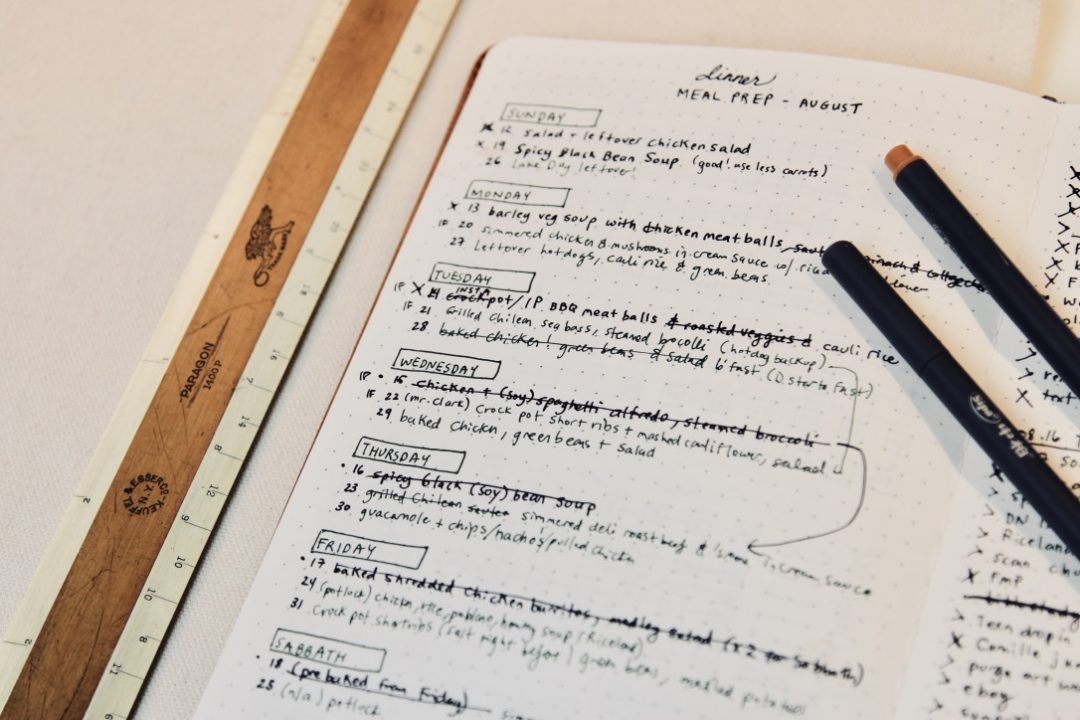 dinner
MEAL PREP - AUGUST
SUNDAY
x 12 salad + leftover chicken salad
x 19 Spicy Black Bean Soup (good! use less carrots)
26 Lake Day leftover!
MONDAY
x 13 barley veg soup with chicken meat balls, spinach & collagen
IF 20 simmered chicken & mushrooms in cream sauce w/
27 leftover hotdogs, cauli rice & green beans
TUESDAY
INSTA
IP X 14 crockpot/IP BBQ meat balls & roasted veggies & cauli rice
IF 21 Grilled Chilean sea bass, steamed brocolli (hotdog backup)
28 baked chicken! green beans & salad b'fast (D. starts fast)
WEDNESDAY
IP • 15 Chicken + (soy) spaghetti alfredo, steamed broccoli
IF 22 (mr. clark) crock pot short ribs + mashed cauliflower, salad
29 baked chickn, green beans + salad
THURSDAY
• 16 spicy black (soy) bean soup
23 grilled Chilean simmered deli roast beef & in cream sauce
30 guacamole + chips/nachos/pulled chickn
FRIDAY
• 17 baked shredded chicken burritos, medley salad (x2 for Sabbath)
24 (potlock) chickn, rice, poblano, hominy soup (Riceland)
31 crock pot shortribs (salt night before) green beans, mashed potatoes
SABBATH
• 18 (prebaked from Friday)
25 (n/a) potlock
PARAGON
1400P
KEUFFEL & ESSER CO.
N.Y.
TRADE MARK
Riceland
FMP
Teen drop in
Camille
purge art
ebay